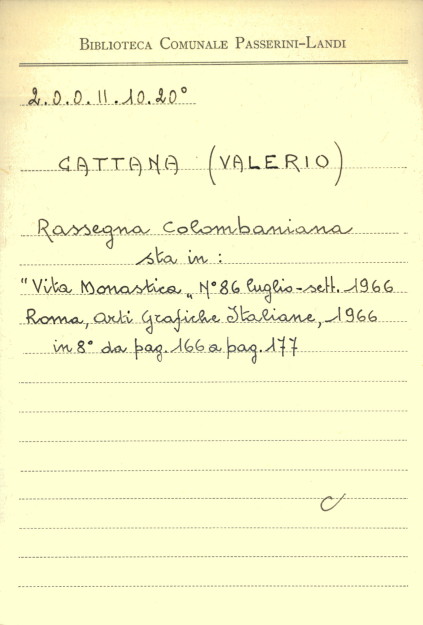 Biblioteca Comunale Passerini-Landi
2.0.0.II.10.20°
CATTANA (VALERIO)
Rassegna Colombaniana
sta in :
"Vita Monastica„ N°86 luglio-sett. 1966
Roma, Arti Grafiche Italiane, 1966
in 8° da pag. 166 a pag. 177
C